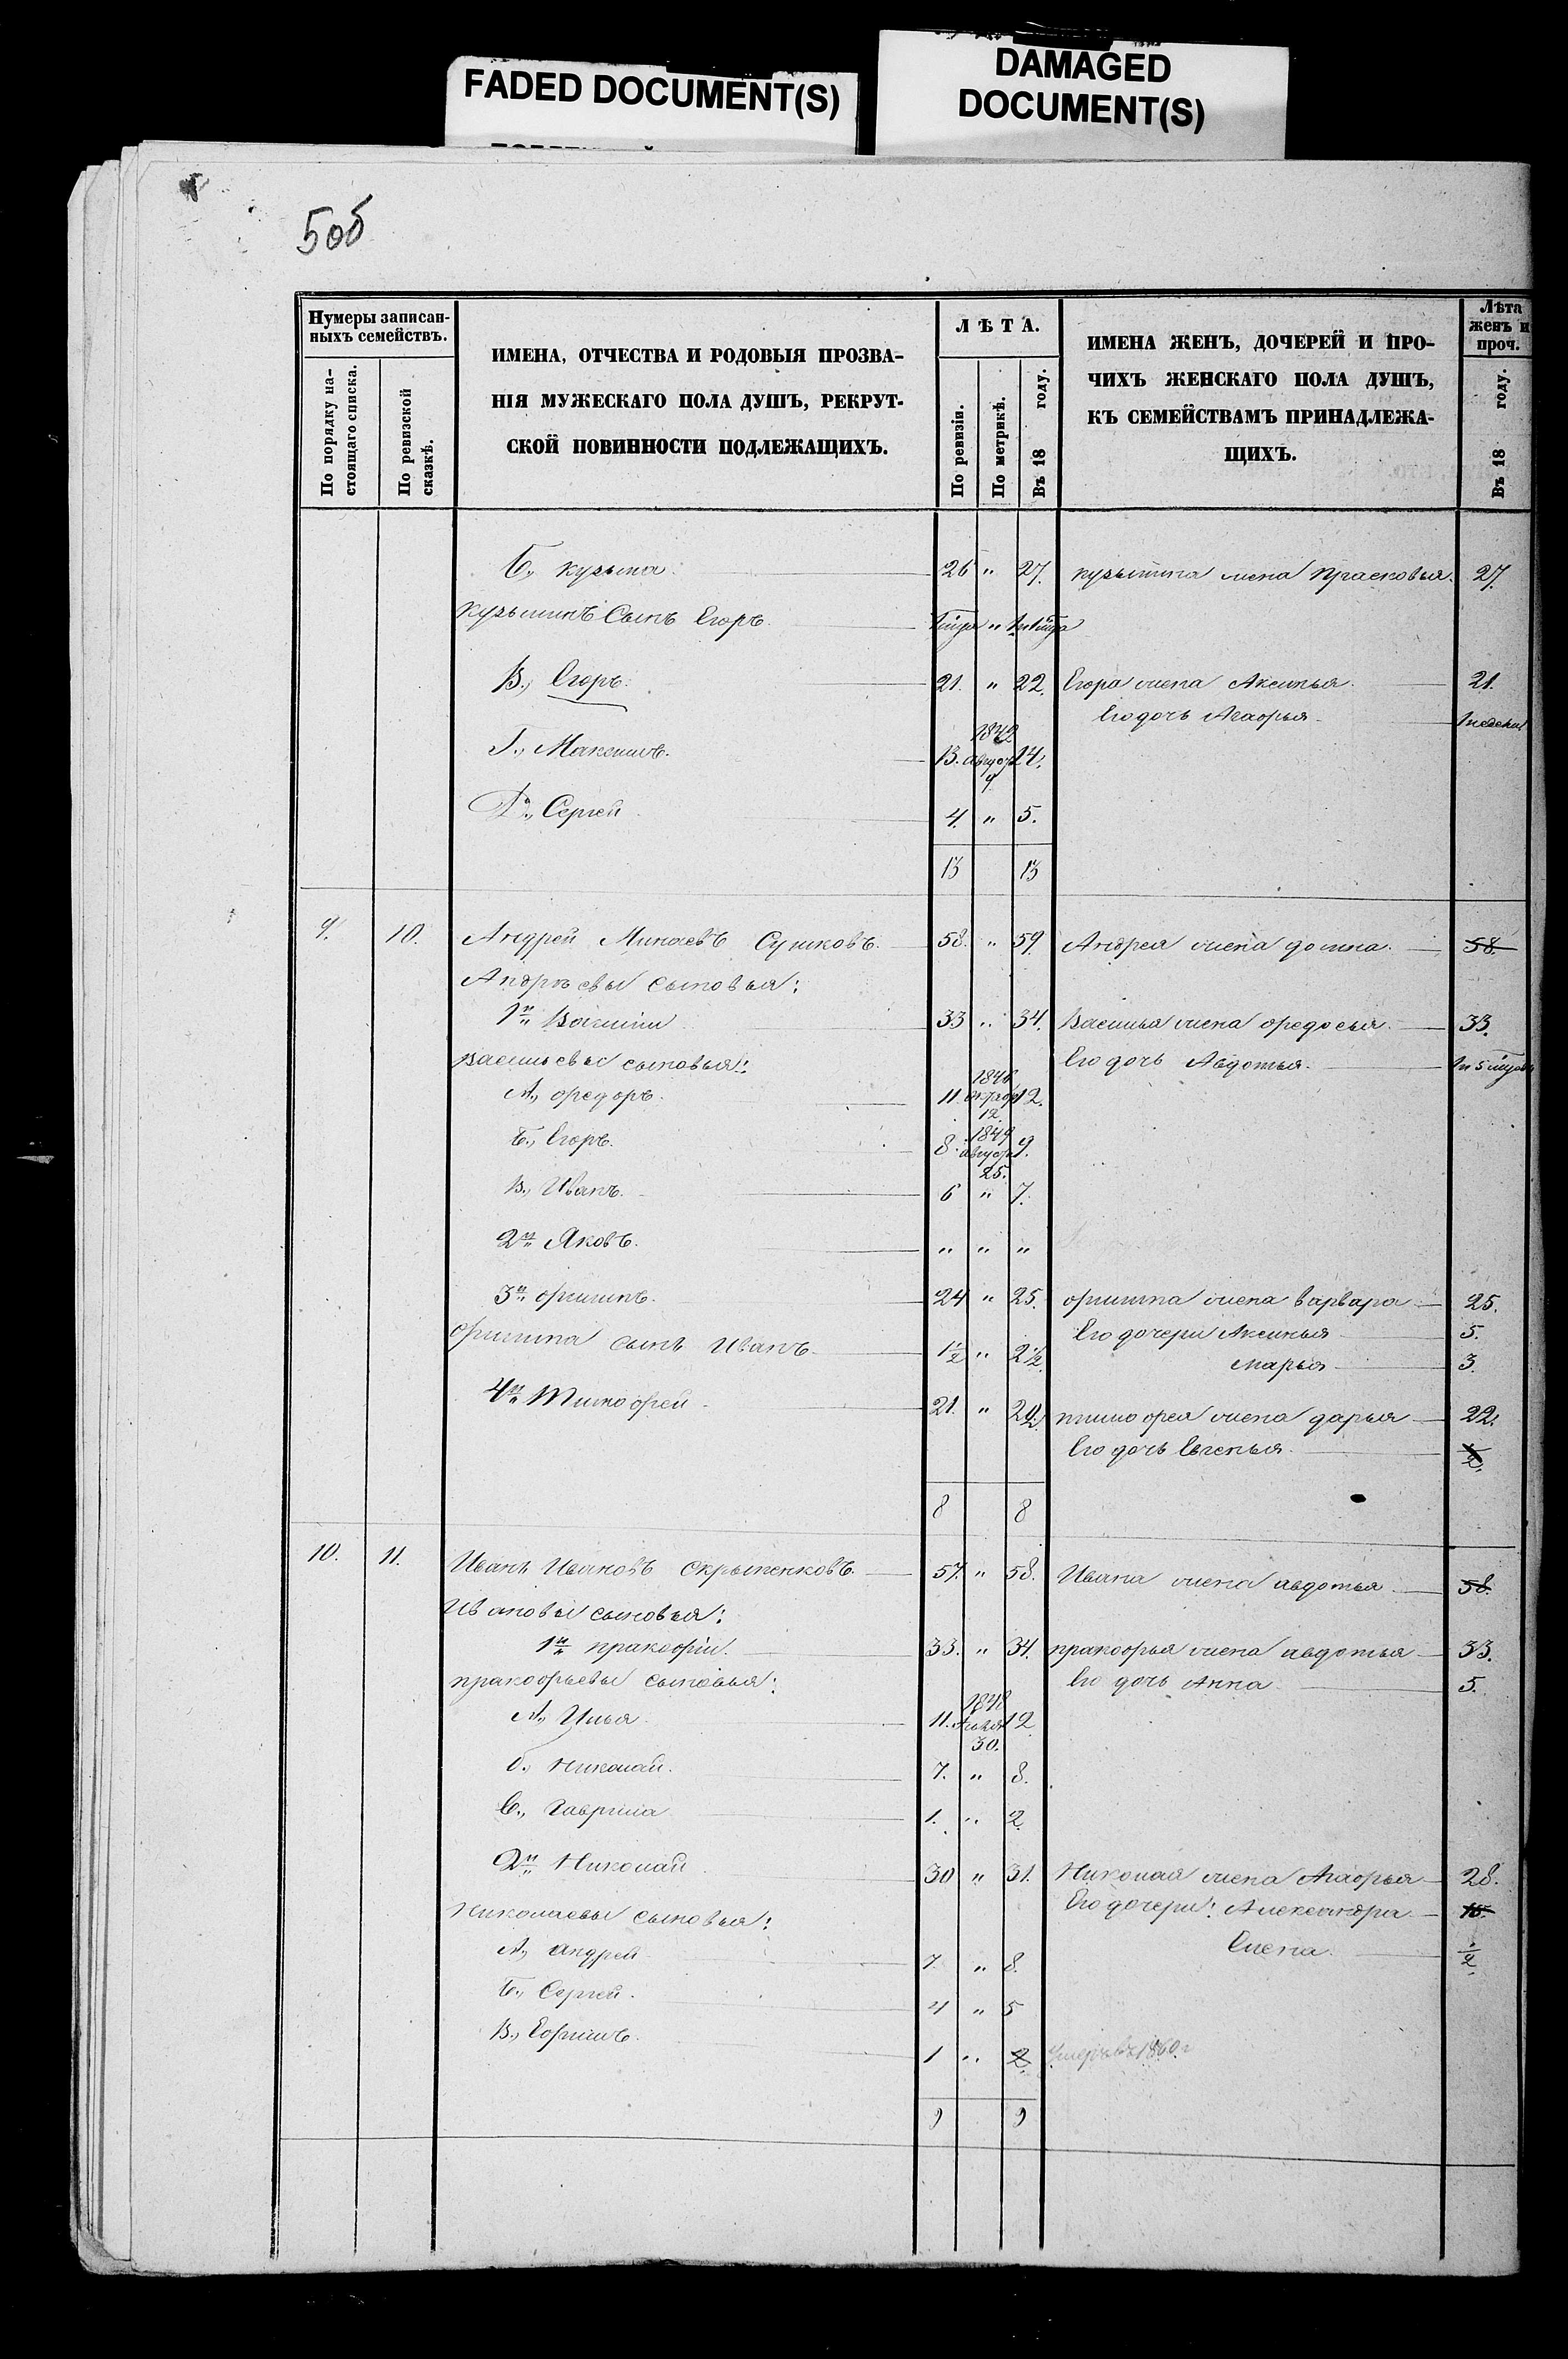 FADED DOCUMENT(S)
DAMAGED
DOCUMENT(S)
5об
Нумеры записан-
ныхъ семействъ.
По порядку на-
стоящаго списка.
По ревизской
сказкѣ.
ИМЕНА, ОТЧЕСТВА И РОДОВЫЯ ПРОЗВА-
НІЯ МУЖЕСКАГО ПОЛА ДУШЪ, РЕКРУТ-
СКОЙ ПОВИННОСТИ ПОДЛЕЖАЩИХЪ.
ЛѢТА.
По ревизіи.
По метрикѣ.
Въ 18 году.
ИМЕНА ЖЕНЪ, ДОЧЕРЕЙ И ПРО-
ЧИХЪ ЖЕНСКАГО ПОЛА ДУШЪ,
КЪ СЕМЕЙСТВАМЪ ПРИНАДЛЕЖА-
ЩИХЪ.
Лѣта
женъ и
проч.
Въ 18 году.
Б., кузьма 26 " 27. кузьмина жена Прасковья. 27.
кузьминъ Сынъ Егоръ "
В., Егоръ. 21. " 22. Егора жена Аксинья. 21.
Его дочь Агафья
Г., Максимъ. 13. августа 9 14.
Д., Сергей 4. " 5.
13 13
9. 10. Андрей Минаевъ Сушковъ. 58. " 59. Андрея жена домна. 58.
Андрѣевы сыновья:
1й Василий 33 " 34. Василья жена федосья. 33.
Васильевы сыновья: Его дочь Авдотья.
А., федоръ. 11. 1846 октября 12. 12.
Б., Егоръ. 8. 1849 августа 25. 9.
В., Иванъ. 6 " 7.
2й Яковъ. " " "
3й филипъ. 24 " 25. филипа жена варвара 25.
Его дочери Аксинья 5.
филипа сынъ Иванъ 1½ " 2½
марья 3.
4й Тимофей 21. " 22. тимофея жена дарья 22.
Его дочь Евгенья. ½
8 8
10. 11. Иванъ Ивановъ Скрыпенковъ. 57. " 58. Ивана жена авдотья 58.
Ивановы сыновья:
1й пракофiй. 33. " 34. пракофья жена авдотья 33.
пракофьевы сыновья: Его дочь Анна 5.
А., Илья 11. 30. 12
б., Николай. 7. " 8.
В., Гаврила 1. " 2.
2й Николай 30 " 31. Николая жена Агафья 28.
Николаевы сыновья: Его дочери: Александра
Елена. ½
А., андрей 7. " 8.
Б., Сергей. 4 " 5
В., Ефимъ. 1 " 2. умеръ въ 1860 г
9 9